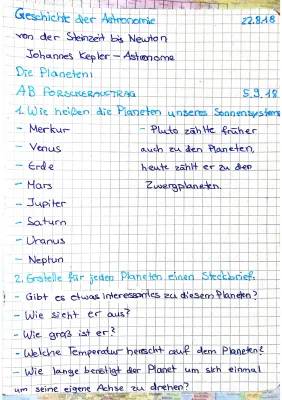 Geschichte der Astronomie 22.8.18
von der Steinzeit bis Newton
Johannes Kepler - Astronome
Die Planeten:
AB FORSCHERAUFTRAG 5.9.18
1. Wie heißen die Planeten unseres Sonnensystems
- Merkur - Pluto zählte früher
- Venus auch zu den Planeten,
- Erde heute zählt er zu den
- Mars Zwergplaneten.
- Jupiter
- Saturn
- Uranus
- Neptun
2. Erstelle für jeden Planeten einen Steckbrief.
- Gibt es etwas Interessantes zu diesem Planeten?
- Wie sieht er aus?
- Wie groß ist er?
- Welche Temperatur herrscht auf dem Planeten?
- Wie lange benötigt der Planet um sich einmal
um seine eigene Achse zu drehen?